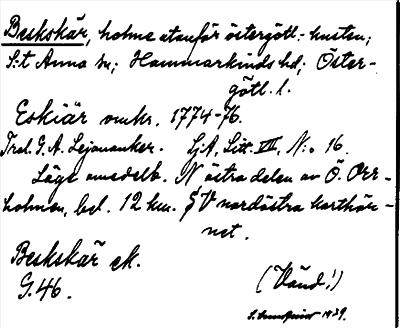 Beskskär, holme utanför östergötl.-kusten;
S:t Anna sn; Hammarkinds hd; Öster-
götl. l.
Eskiär omkr. 1774-76.
Trol. G. A. Lejonanker. GA, Litt. VII, N:o 16.
Läge omedelb. N östra delen av Ö.
holmen, bel. 12 km. SV nordöstra karthör-
net.
Beskskär ek.
G. 46.
(Vänd!)
1939.